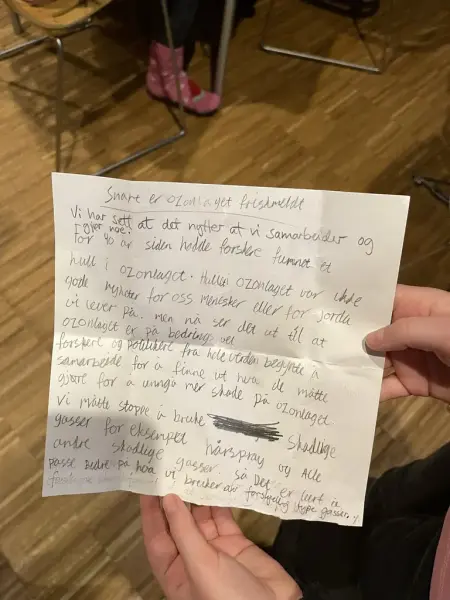 Snart er ozonlaget friskmeldt
Vi har sett at det nytter at vi samarbeider og
gjør noe!
For 40 år siden hadde forskere funnet et
hull i ozonlaget. Hullet i ozonlaget var ikke
gode nyheter for oss menesker eller for jorda
vi lever på. men nå ser det ut til at
ozonlaget er på bedrings vei
forskere og politikere fra hele verden begynte å
samarbeide for å finne ut hva de måtte
gjøre for å unngå mer skade på ozonlaget
Vi måtte stoppe å bruke skadlige
gasser for eksempel hårspray og Alle
andre skadlige gasser. så Det er lurt å
passe bedre på hva vi bruker av forskjellig type gasser.